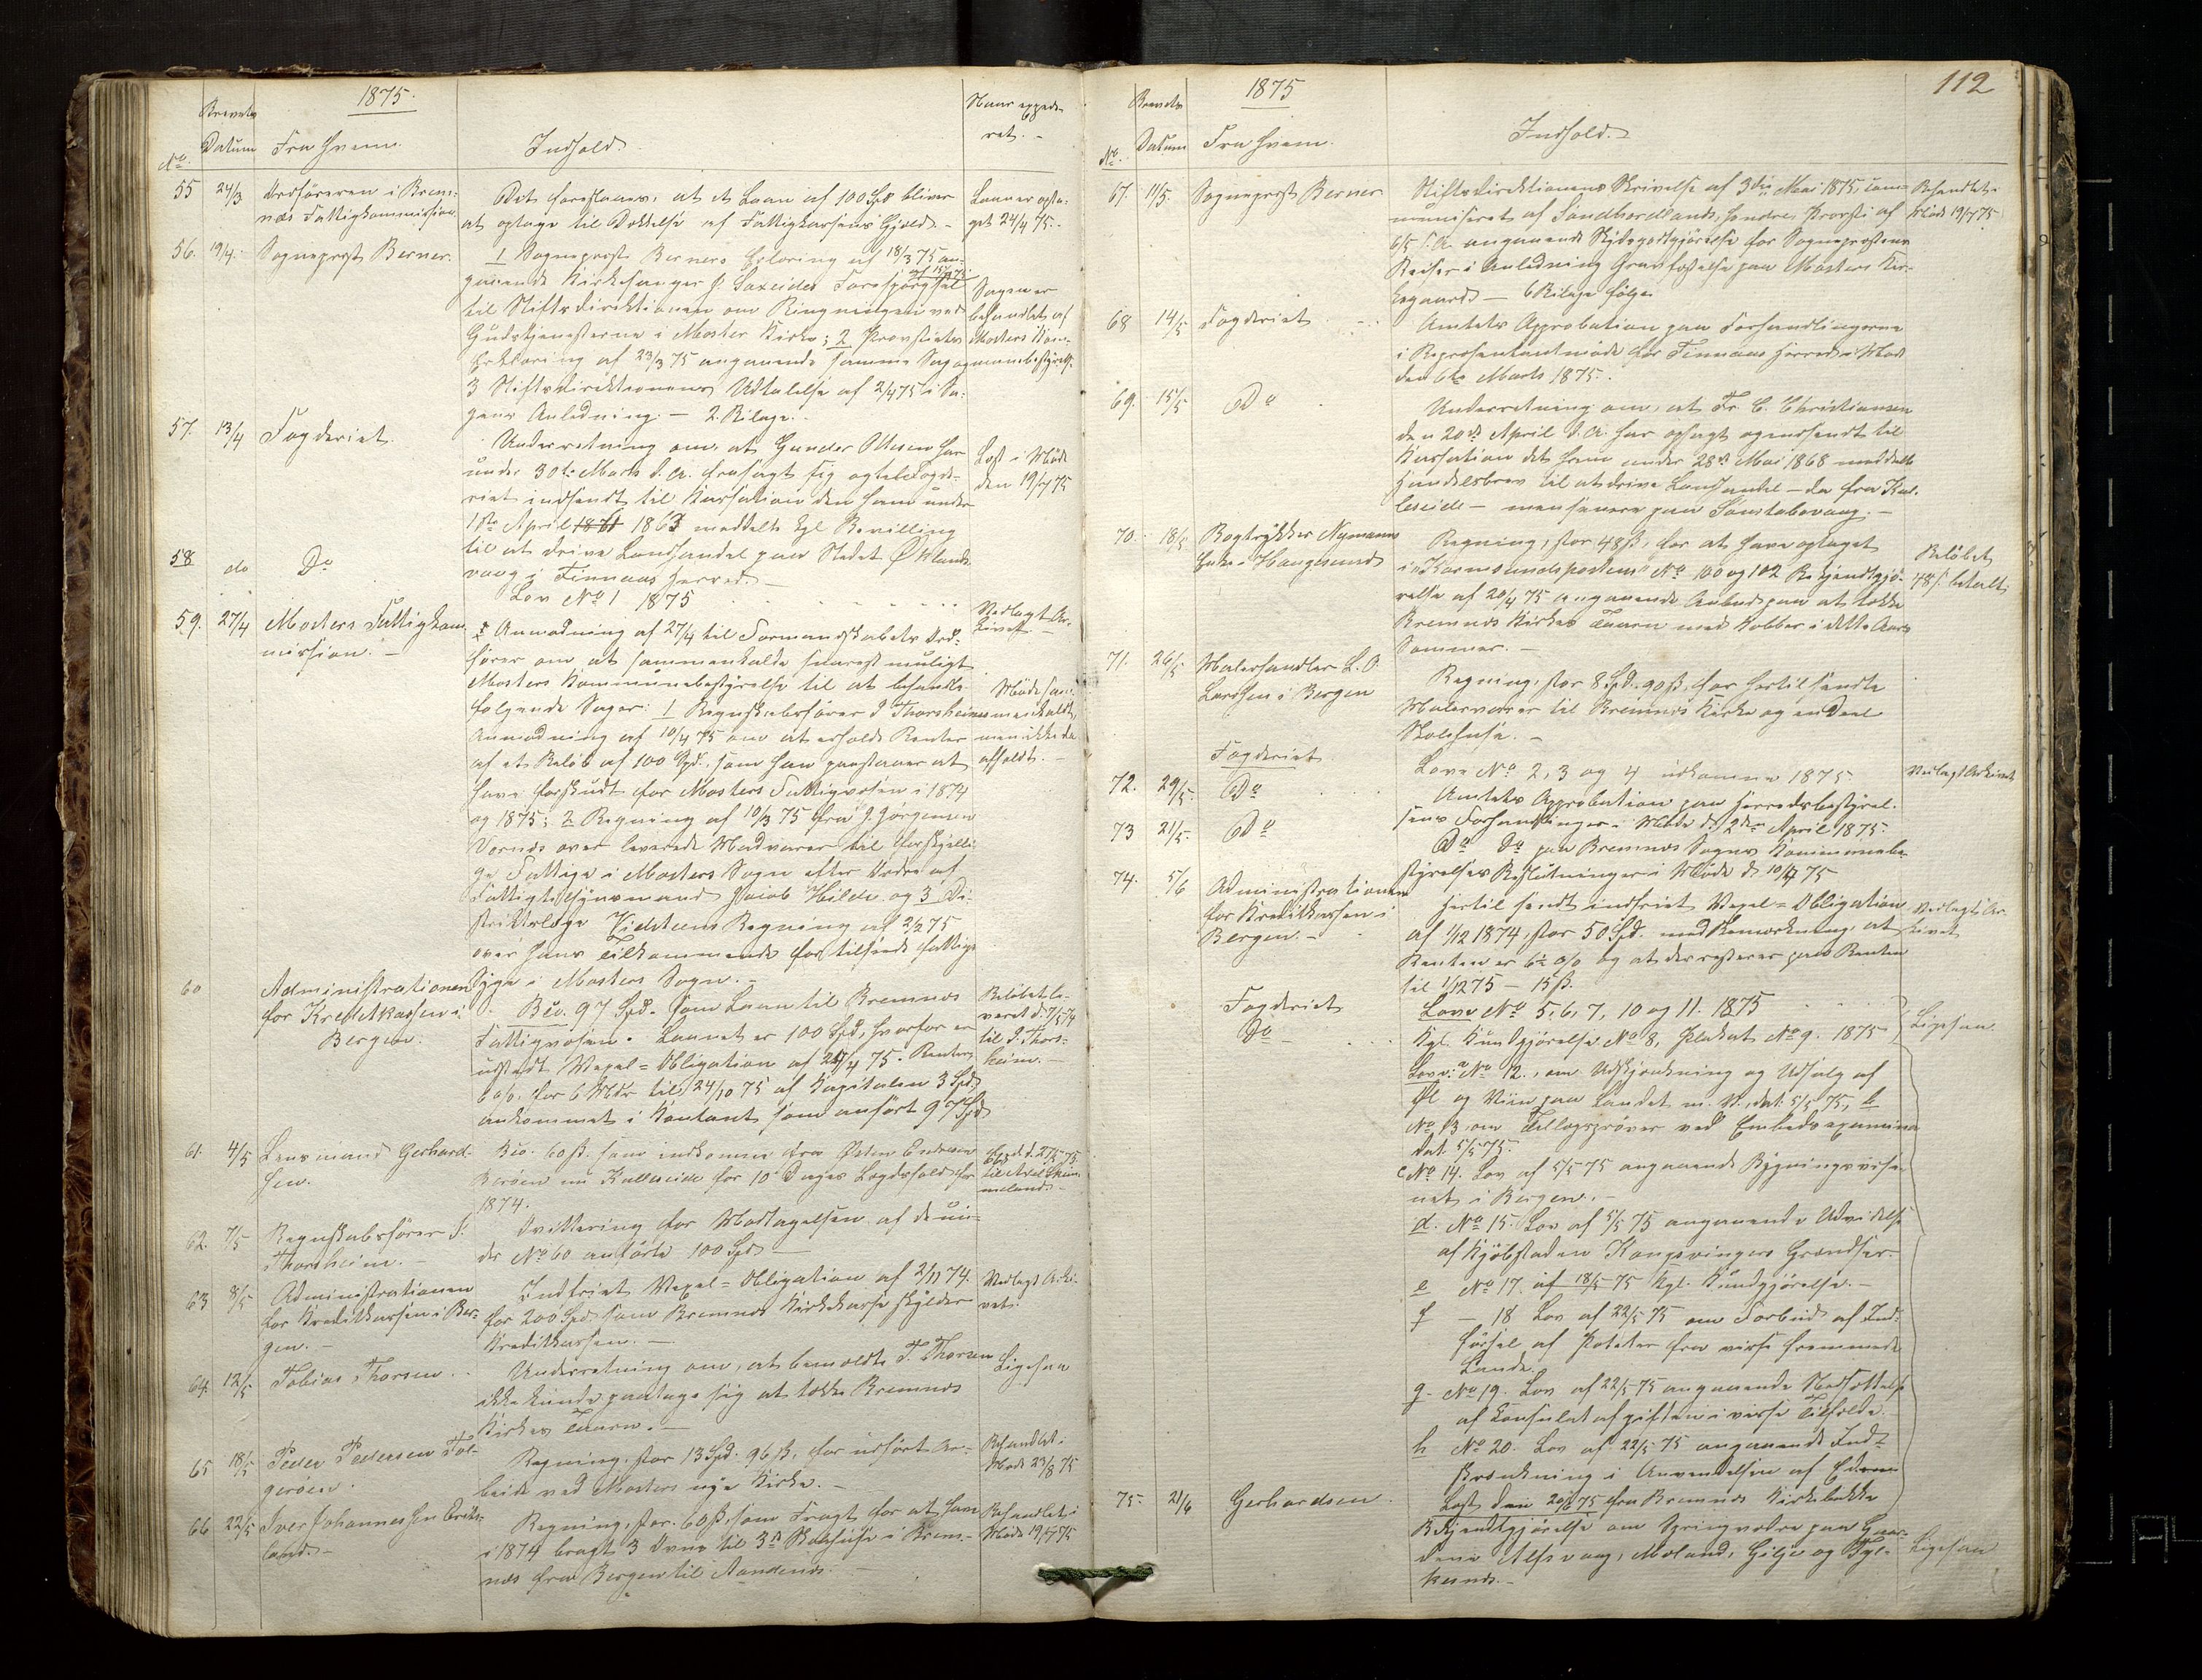 1875.
Brevets
Datum
No.
Fra hvem.
Indhold.
Naar expede-
ret. -
55 24/3 Ordføreren i Brem-
næs Fattigkommission.
Det foreslaaes, at et Laan af 100 Spd bliver
at optage til Dækkelse af Fattigkassens Gjæld. -
Laan er opta-
get 24/4 75. -
56. 19/4. Sogneprest Berner.
1 Sogneprest Berners Erklæring af 18/3 75 an-
gaaende Kirkesanger Saxeides Forespørgsel
til Stiftsdirektionen om Ringningen ved
Gudstjenesterne i Moster Kirke; 2 Provstiets
Erklæring af 23/3 75 angaaende samme Sag og
3 Stiftsdirektionens Udtalelse af 2/4 75 i Sa-
gens Anledning. - 2 Bilage.
Sagen er
behandlet af
Mosters Kom-
munebestyrelse.
57. 13/4 Fogderiet.
Underretning om, at Gunder Ottesen har
under 30te Marts d. A. frasagt sig og til Fogde-
riet indsendt til Kassation den ham under
1ste April 1861 1863 meddelte kgl Bevilling
til at drive Landhandel paa Stedet Øklands-
vaag i Finnaas Herred. -
Læst i Møde
den 19/7 75
58 do Do
Lov No 1 1875
Vedlagt Ar-
kivet -
59. 27/4 Mosters Fattigkom-
mission. -
Anmodning af 27/4 til Formandskabets Ord-
fører om at sammenkalde snarest muligt
Mosters Kommunebestyrelse til at behandle
følgende Sager: 1 Regnskabsfører I Thorsheims
Anmodning af 10/4 75 om at erholde Renter
af et Beløb af 100 Spd., som han paastaaer at
have forskudt for Mosters Fattigvæsen i 1874
og 1875; 2 Regning af 10/3 75 fra J. Jørgensen
Vornæs over leverede Madvarer til forskjelli-
ge Fattige i Mosters Sogn efter Ordre af
Fattigtilsynsmand Jacob Hilde og 3 Di-
striktslæge Kielsteens Regning af 2/2 75
over hans Tilkommende for tilseede fattige
Syge i Mosters Sogn. -
Møde sam-
menkaldt,
men ikke da
afholdt. -
60 Administrationen
for Kreditkassen i
Bergen.
Bev. 97 Spd. som Laan til Bremnæs
Fattigvæsen. Laanet er 100 Spd, hvorfor er
udstedt Vexel-Obligation af 24/4 75. Renten
6 o/o for 6 Mdr til 24/10 75 af Kapitalen 3 Spd.
ankommet i Kontant som anført 97 Spd
Beløbet le-
veret d. 7/5 74
til I Thors-
heim. -
61. 4/5 Lensmand Gerhard-
sen.
Bev. 60 ß. som indkomne fra Østen Endresen
Børøen nu Kulleseide for 10 Dages Lægdshold for
1874.
62. 7/5 Regnskabsfører I.
Thorsheim. -
Qvittering for Modtagelsen af de un-
der No 60 anførte 100 Spd -
63 8/5 Administrationen
for Kreditkassen i Ber-
gen. -
Indfriet Vexel-Obligation af 2/11 74.
for 200 Spd. som Bremnæs Kirkekasse skylder
Kreditkassen. -
Vedlagt Arki-
vet.
64. 12/5 Tobias Thorsen.
Underretning om, at bemeldte T. Thorsen
ikke kunde paatage sig at tække Bremnæs
Kirkes Taarn. -
Ligesaa
65 18/5 Peder Pedersen Fol-
gerøen.
Regning, stor 13 Spd. 96 ß, for udført Ar-
beide ved Mosters nye Kirke. -
Behandlet i
Møde 23/8 75
66 22/5 Iver Johannessen Eriks-
land. -
Regning, stor 60 ß, som Fragt for at have
i 1874 bragt 3 Ovne til 3de Skolehuse i Brem-
næs fra Bergen til Aandenæs. -
Behandlet i
Møde 19/7 75
112
1875
Brevets
No. Datum Fra hvem.
Indhold. -
67. 11/5. Sogneprest Berner
Stiftsdirektionens Skrivelse af 3die Mai 1875, com-
muniseret af Søndhordlands søndre Provsti af
6/5 s. A. angaaende Skydsgodtgjørelse for Sogneprestens
Reiser i Anledning Gravfæstelse paa Mosters Kir-
kegaard. - 6 Bilage følge.
Behandlet i
Møde 19/7 75
68 14/5 Fogderiet
Amtets Approbation paa Forhandlingerne
i Repræsentantmøde for Finnaas Herred i Møde
den 6te Marts 1875.
69. 15/5 Do
Underretning om, at Fr. C. Christiansen
den 20de April d. A. har opsagt og indsendt til
Kassation det ham under 28de Mai 1868 meddelte
Handelsbrev til at drive Landhandel - da fra Kul-
leseide - men senere paa Lønstøbevaag. -
70. 18/5 Bogtrykker Nymanns
Enke i Haugesund
Regning, stor 48 ß, for at have optaget
i "Karmsundsposten" No 100 og 102 Bekjendtgjø-
relse af 20/4 75 angaaende Anbud paa at tække
Bremnæs Kirkes Taarn med Kobber i dette Aars
Sommer. -
Beløbet
48 ß. betalt
71. 26/5 Malerhandler L. O.
Larssen i Bergen
Regning, stor 8 Spd. 90 ß, for hertil sendte
Malervarer til Bremnæs Kirke og en Deel
Skolehuse. -
Fogderiet
Love No 2, 3 og 4 udkomne 1875
Vedlagt Arkivet
72. 29/5. Do
Amtets Approbation paa Herredsbestyrel-
sens Forhandlinger i Møde d. 2den April 1875.
73 21/5. Do
Do Do paa Bremnæs Sogns Kommunebe-
styrelses Beslutninger i Møde d. 10/4 75
74. 5/6 Administrationen
for Kreditkassen i
Bergen. -
Hertil sendt indfriet Vexel-Obligation
af 1/12 1874, stor 50 Spd. med Bemærkning, at
Renten er 6½ o/o og at der resterer paa Renten
til 1/12 75 - 15 ß.
Vedlagt Ar-
kivet
Fogderiet
Do -
Love No 5, 6, 7, 10 og 11. 1875
Kgl. Kundgjørelse No 8, Plakat No 9. 1875
Ligesaa
Lov: a No 12., om Udskjænkning og Udsalg af
Øl og Viin paa Landet m. V., dat. 5/5 75, b
No 13 om Tillægsprøver ved Embedsexamina
dat. 5/5 75.
c No 14. Lov af 5/5 75 angaaende Bygningsvæse-
net i Bergen. -
d. No 15. Lov af 5/5 75 angaaende Udvidelse
af Kjøbstaden Kongsvingers Grændser.
e No 17. af 18/5 75 Kgl. Kundgjørelse. -
f - 18 Lov af 22/5 75 om Forbud af Ind-
førsel af Poteter fra visse fremmede
Lande.
g. No 19. Lov af 22/5 75 angaaende Nedsættelse
af Consulatafgiften i visse Tilfælde.
h No 20. Lov af 22/5 75 angaaende Ind-
skrænkning i Anvendelsen af Eden
75. 21/6 Gerhardsen.
Læst den 20/6 75 fra Bremnæs Kirkebakke
Bekjendtgjørelse om Springvedre paa Gaar-
dene Alsvaag, Meland, Gilje og Fyl-
kesnæs. -
Ligesaa